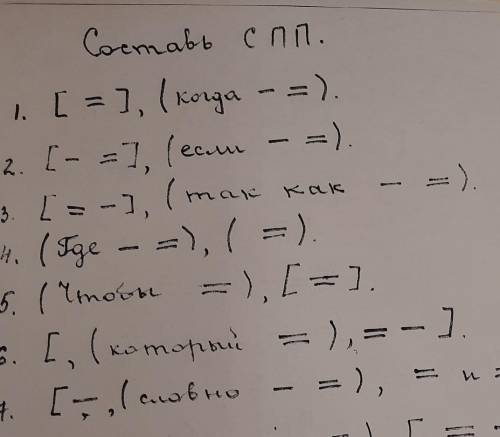 Составь СПП.
1. [ = ], (когда – = ).
2. [ – = ], (если – = ).
3. [ = – ], (так как – = ).
4. (Где – = ), ( = ).
5. (Чтобы = ), [ = ].
6. [, (который = ), = – ].
7. [ –, (словно – = ), = и =